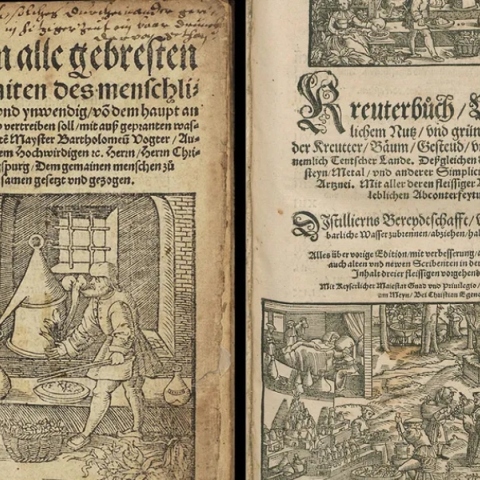 n alle gebresten
aiten des menschli-
ond ynwendig/ võ dem haupt an
vertreiben soll/ mit auß gepranten was-
Mayster Bartholomeü Vogter/ Au-
em Hochwirdigen ꝛc. Herrn/ Herrn Chri-
spurg/ Dem gemainen menschen zů
samen gesetzt vnd gezogen.
Kreuterbůch/
lichem Nutz/ vnd grün
der Kreutter/ Bäum/ Gesteud/
nemlich Teutscher Lande. Deßgleichen
steyn/ Metal/ vnd anderer Simplici
Artznei. Mit aller deren fleissiger
leblichen Abconterfeytu
Distillierns Bereydtschafft/
barliche Wasser zubrennen/ abziehen/
Alles über vorige Edition/ mit verbesserung/
auch alten vnd newen Scribenten in de
Inhalt dreier fleissigen vorgehend
Mit Keyserlicher Maiestat Gnad vnd Priuilegio/
am Meyn/ Bei Christian Egen